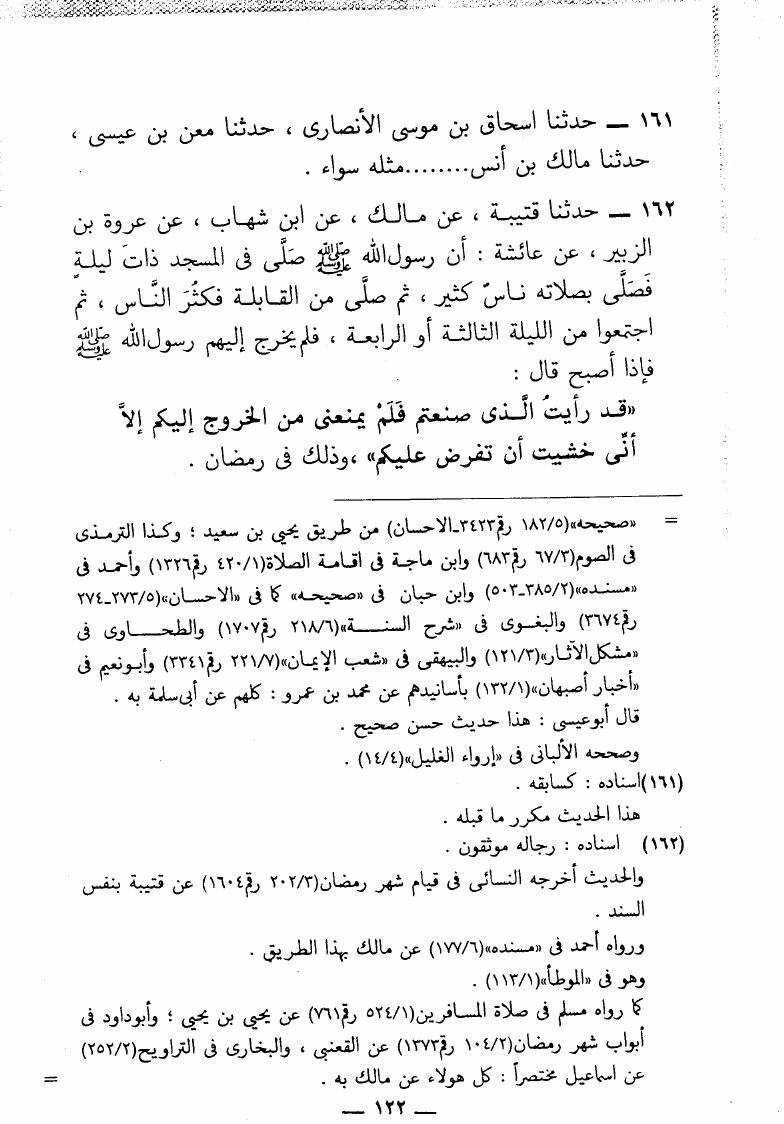 ١٦١ — حدثنا اسحاق بن موسى الأنصارى ، حدثنا معن بن عيسى ،
حدثنا مالك بن أنس........مثله سواء .
١٦٢ — حدثنا قتيبة ، عن مالك ، عن ابن شهاب ، عن عروة بن
الزبير ، عن عائشة : أن رسول الله ﷺ صَلَّى فى المسجد ذاتَ ليلةٍ
فَصَلَّى بصلاته ناسٌ كثير ، ثم صلَّى من القابلة فكثُرَ النَّاس ، ثم
اجتمعوا من الليلة الثالثة أو الرابعة ، فلم يخرج إليهم رسول الله ﷺ
فإذا أصبح قال :
«قد رأيتُ الَّذى صنعتم فَلَمْ يمنعنى من الخروج إليكم إلاَّ
أنِّى خشيت أن تفرض عليكم» ،وذلك فى رمضان .
= «صحيحه»(١٨٢/٥ رقم٣٤٢٣-الاحسان) من طريق يحيي بن سعيد ؛ وكذا الترمذى
فى الصوم(٦٧/٣ رقم٦٨٣) وابن ماجة فى اقامة الصلاة(٤٢٠/١ رقم١٣٢٦) وأحمد فى
«مسنده»(٣٨٥/٢-٥٠٣) وابن حبان فى «صحيحه» كما فى «الاحسان»(٢٧٣/٥-٢٧٤
رقم٣٦٧٤) والبغوى فى «شرح السنة»(٢١٨/٦ رقم١٧٠٧) والطحاوى فى
«مشكل الآثار»(١٢١/٣) والبيهقى فى «شعب الإيمان»(٢٢١/٧ رقم٣٣٤١) وأبونعيم فى
«أخبار أصبهان»(١٣٢/١) بأسانيدهم عن محمد بن عمرو : كلهم عن أبى سلمة به .
قال أبوعيسى : هذا حديث حسن صحيح .
وصححه الألبانى فى «إرواء الغليل»(١٤/٤) .
(١٦١)اسناده : كسابقه .
هذا الحديث مكرر ما قبله .
(١٦٢) اسناده : رجاله موثقون .
والحديث أخرجه النسائى فى قيام شهر رمضان(٢٠٢/٣ رقم١٦٠٤) عن قتيبة بنفس
السند .
ورواه أحمد فى «مسنده»(١٧٧/٦) عن مالك بهذا الطريق .
وهو فى «الموطأ»(١١٣/١) .
كما رواه مسلم فى صلاة المسافرين(٥٢٤/١ رقم٧٦١) عن يحيي بن يحيي ؛ وأبوداود فى
أبواب شهر رمضان(١٠٤/٢ رقم١٣٧٣) عن القعنبى ، والبخارى فى التراويح(٢٥٢/٢)
عن اسماعيل مختصراً : كل هولاء عن مالك به . =
— ١٢٢ —